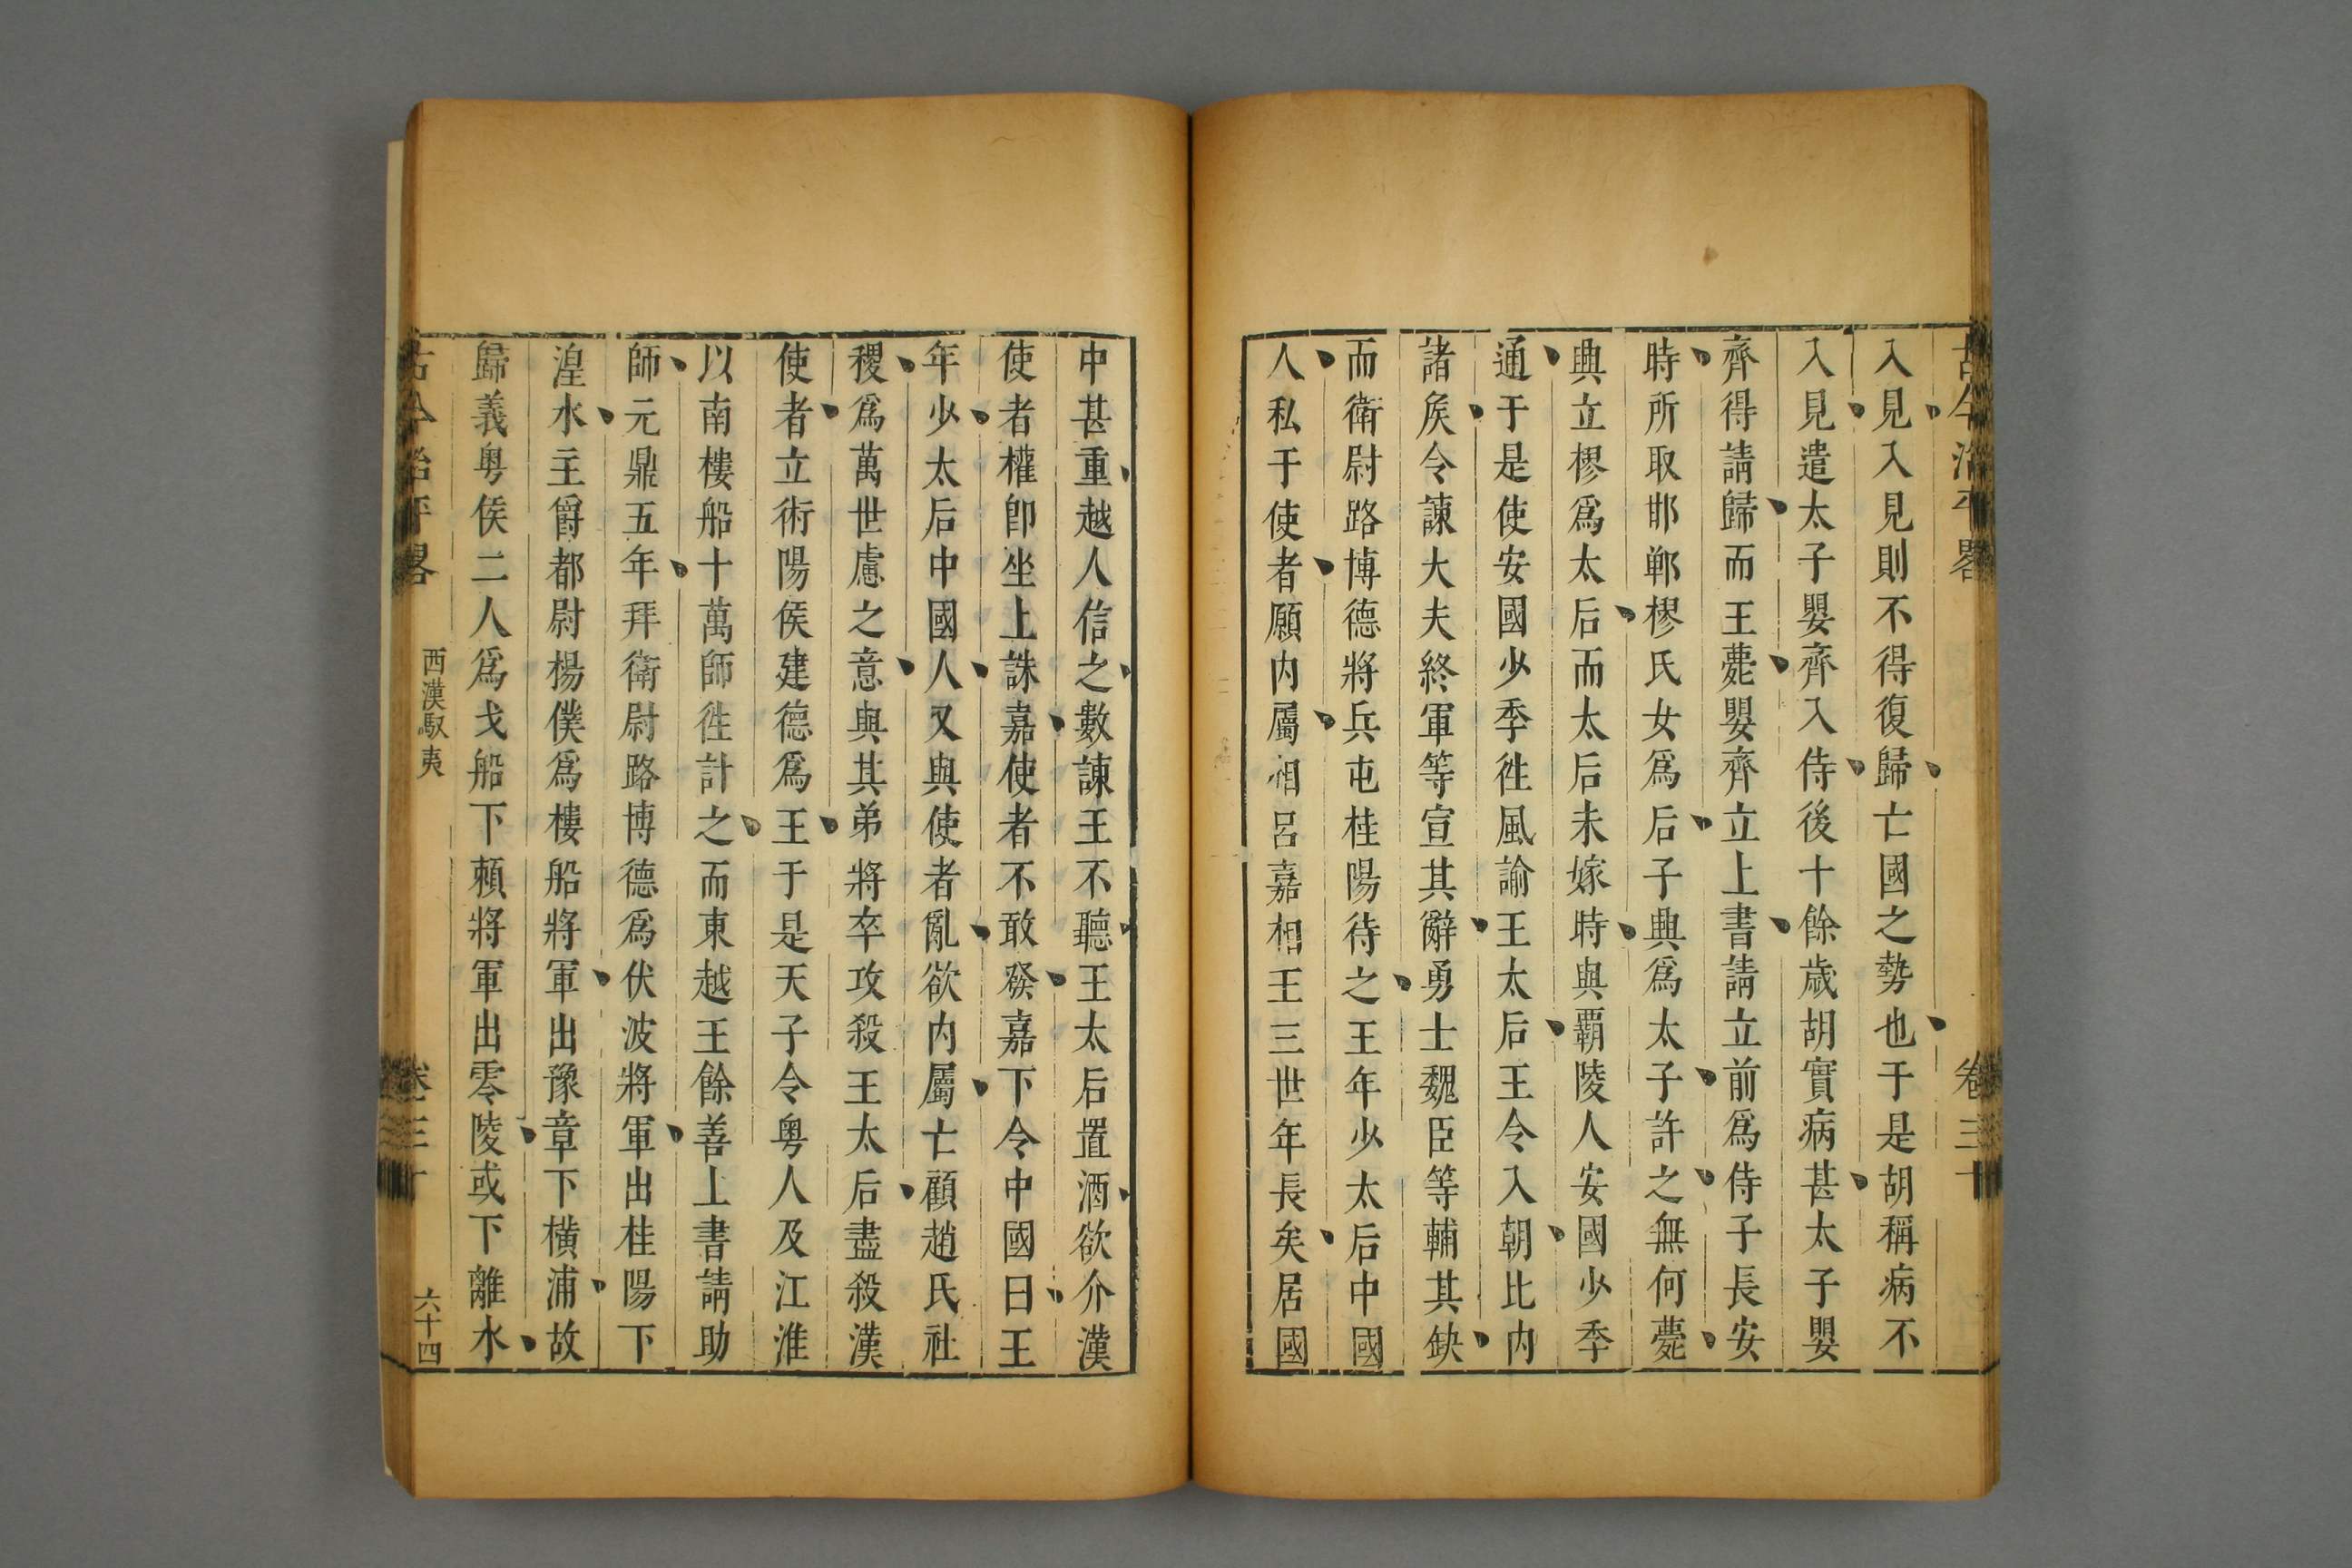 入見入見則不得復歸亡國之勢也于是胡稱病不
入見遣太子嬰齊入侍後十餘歲胡實病甚太子嬰
齊得請歸而王薨嬰齊立上書請立前爲侍子長安
時所取邯鄲樛氏女爲后子興爲太子許之無何薨
興立樛爲太后而太后未嫁時與覇陵人安國少季
通于是使安國少季徃風諭王太后王令入朝比内
諸矦令諫大夫終軍等宣其辭勇士魏臣等輔其缺
而衛尉路博德將兵屯桂陽待之王年少太后中國
人私于使者願内屬相呂嘉相王三世年長矣居國
中甚重越人信之數諫王不聽王太后置酒欲介漢
使者權卽坐上誅嘉使者不敢發嘉下令中國曰王
年少太后中國人又與使者亂欲内屬亡顧趙氏社
稷爲萬世慮之意與其弟將卒攻殺王太后盡殺漢
使者立術陽侯建德爲王于是天子令粤人及江淮
以南樓船十萬師徃計之而東越王餘善上書請助
師元鼎五年拜衛尉路博德爲伏波將軍出桂陽下
湟水主爵都尉楊僕爲樓船將軍出豫章下橫浦故
歸義粤侯二人爲戈船下賴將軍出零陵或下離水
古今治平畧
西漢馭夷
卷三十
六十四